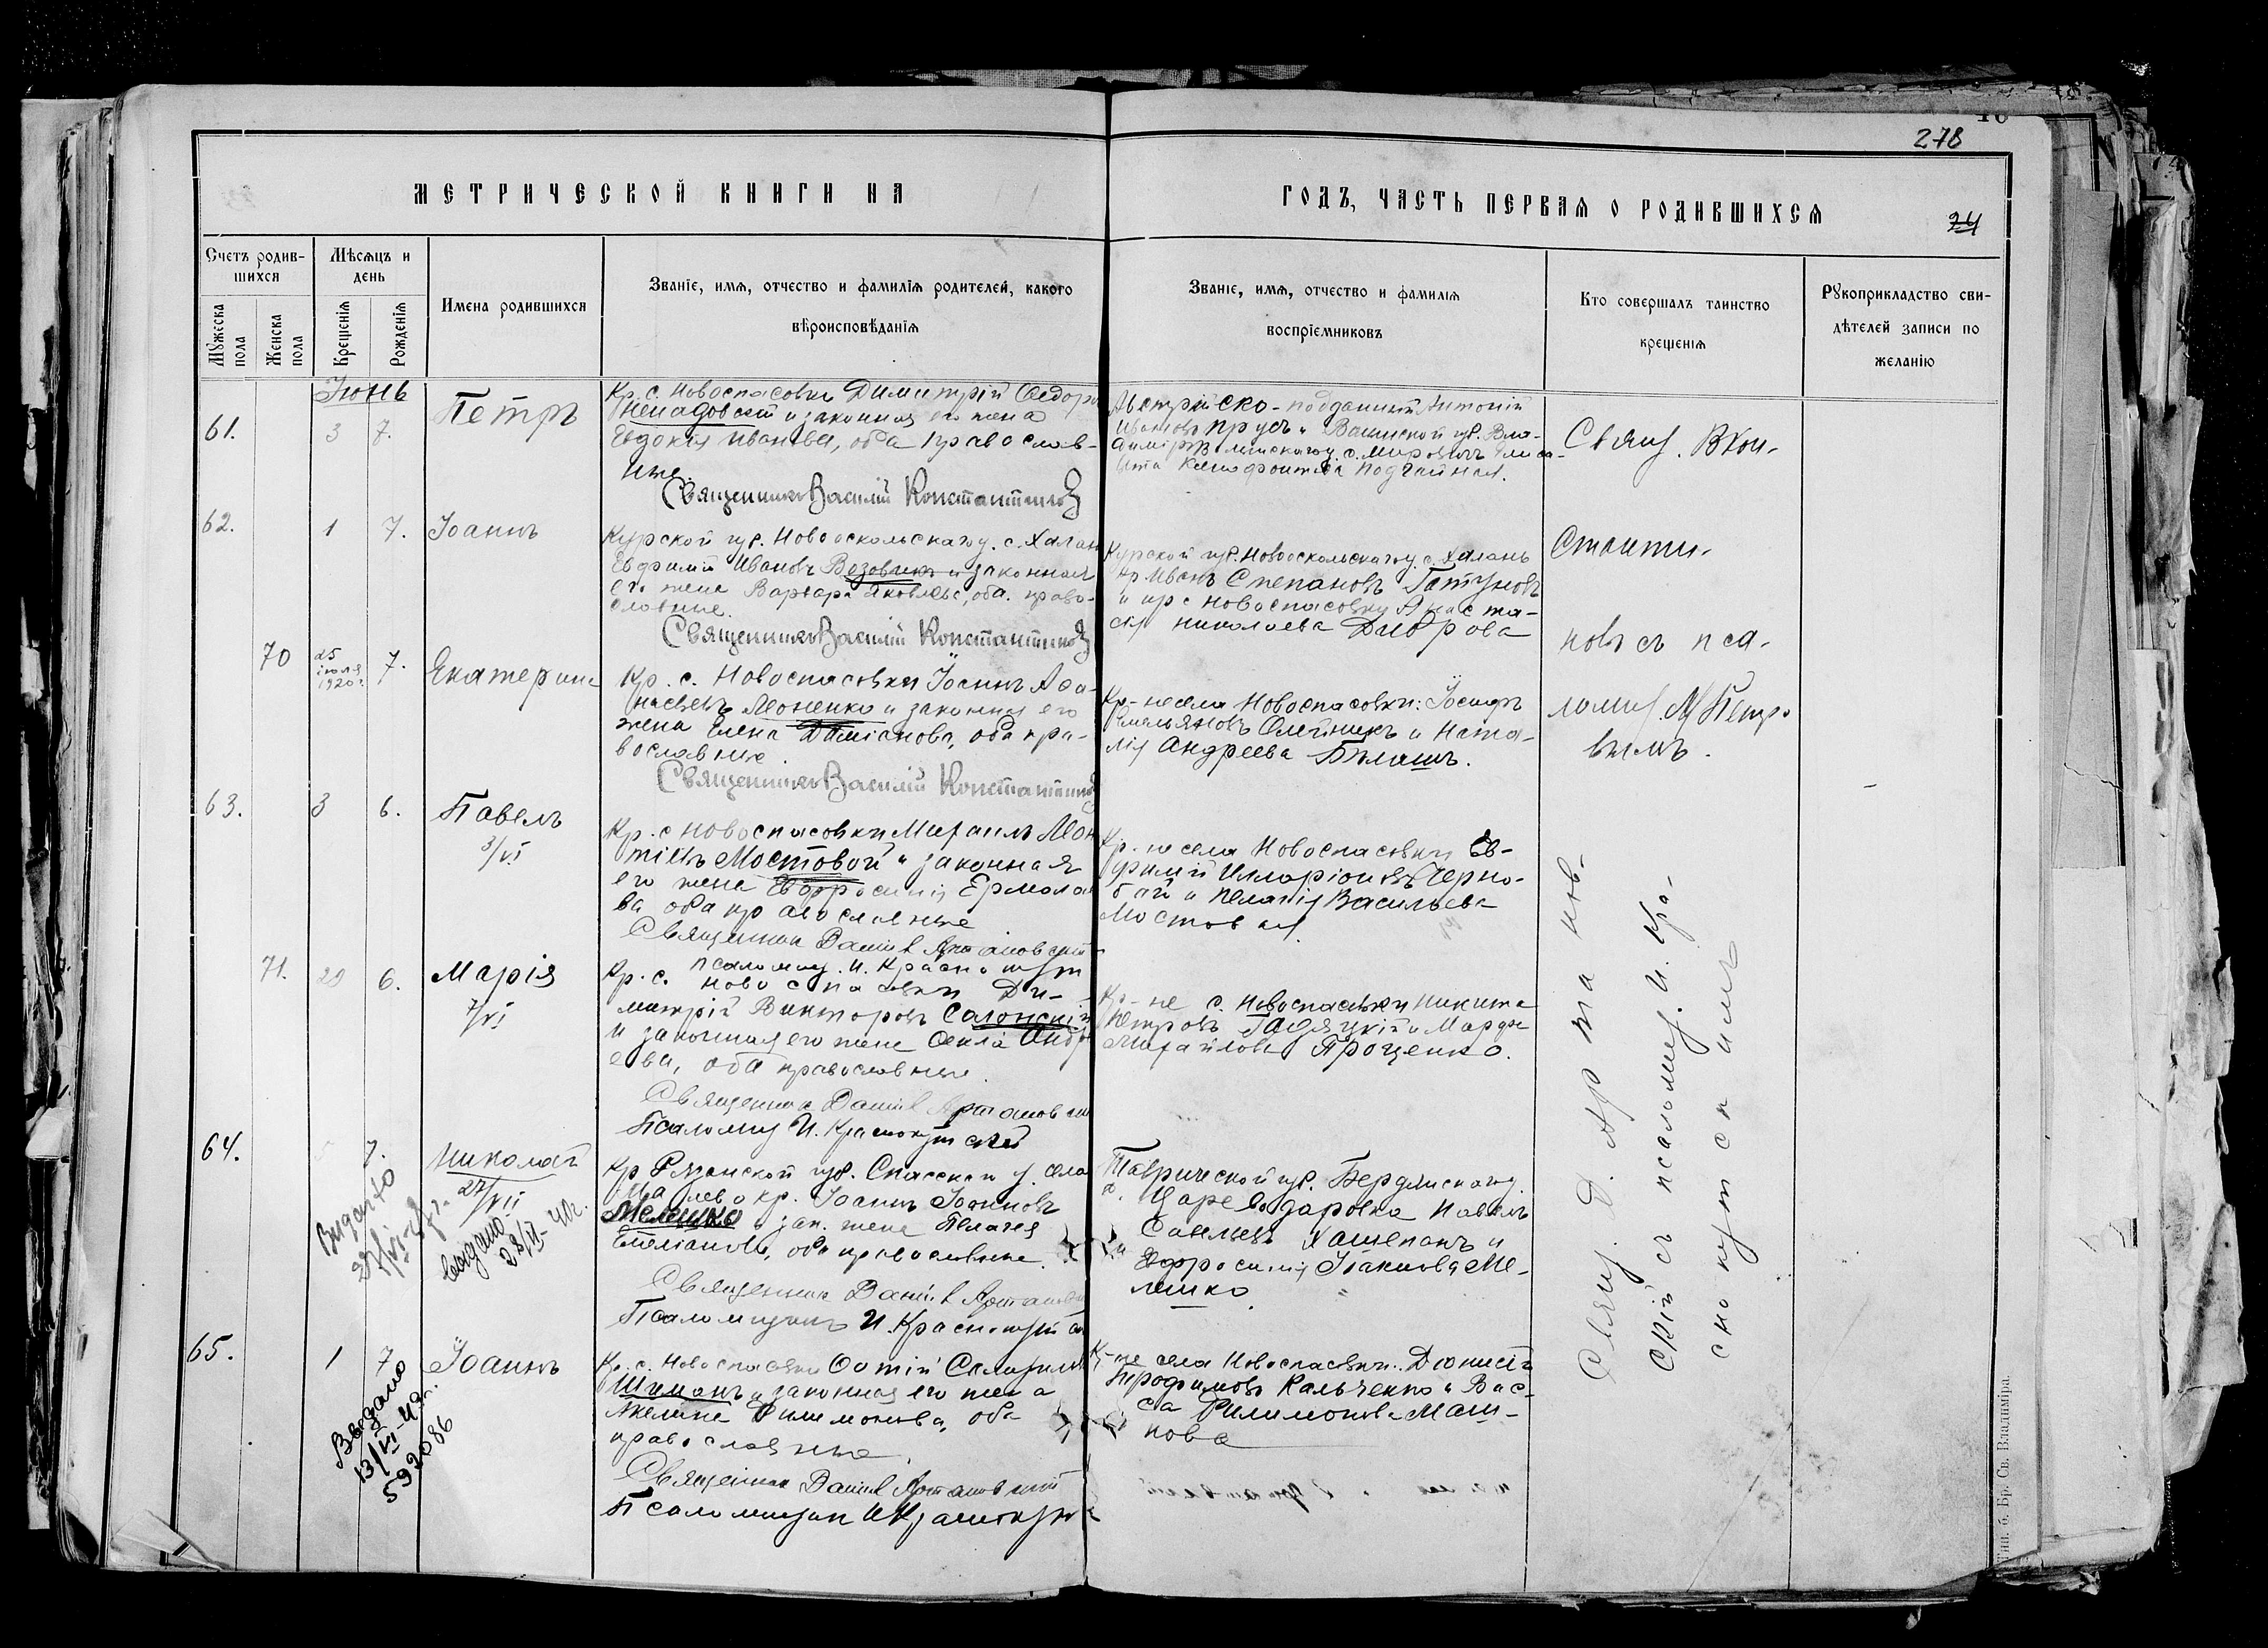 278
МЕТРИЧЕСКОЙ КНИГИ НА
ГОДЪ, ЧАСТЬ ПЕРВАЯ О РОДИВШИХСЯ
24
Счетъ родив-
шихся
Мѣсяцъ и
день
Мужеска
пола
Женска
пола
Крещенія
Рожденія
Имена родившихся
Званіе, имя, отчество и фамилія родителей, какого
вѣроисповѣданія
Званіе, имя, отчество и фамилія
воспріемниковъ
Кто совершалъ таинство
крещенія
Рукоприкладство сви-
дѣтелей записи по
желанію
Іюнь
61.
3
7.
Петръ
Кр. с. Новоспасовки Димитрій Ѳедоро
Ненадовскій и законная его жена
Евдокія Иванова, оба православ-
ные
Священникъ Василій Константиновъ
Австрійско-подданный Антоній
Ивановъ Прусъ и
Подчайная.
Свящ. Вкон-
62.
1
7.
Іоаннъ
Курской губ. Новооскольскаго у. с. Халань
Евфимій Ивановъ Возовикъ и законная
его жена Варвара Яковлева, оба право-
славные.
Священникъ Василій Константиновъ
Курской губ. Новооскольскаго у. с. Халань
кр Иванъ Степановъ Гатуновъ
и кр с Новоспасовки Анаста-
сія Николаева Диброва
станти-
70
25
іюля
1920 г.
7.
Екатерина
Кр. с. Новоспасовки Іоаннъ Аѳа-
насьевъ Леоненко и законная его
жена Елена Даміанова, оба пра-
вославные.
Священникъ Василій Константиновъ
Кр-не села Новоспасовки: Іосифъ
Емельяновъ Олейникъ и Ната-
лія Андреева Бѣлашъ.
новъ съ пса-
ломщ. М Петро
вымъ.
63.
3
6.
Павелъ
3/VI
Кр. с Новоспасовки Михаилъ Леон
тіевъ Мостовой и законная
его жена Евфросинія Ермола
ва оба православные
Священник Даниил Артановскій
псаломщ. И. Краснокут
Кр. не села Новоспасовки Ев-
фимій Илларіоновъ Черно-
бай и Пелагія Васильева
Мостовая.
71.
29
6.
Марія
7/VI
Кр. с. Новоспасовки Ди-
митрій Викторовъ Салонскій
и законная его жена Ѳекла Андр
еева, оба православные.
Священник Даниил Артановскій
Псаломщ И. Краснокутский
Кр-не с. Новоспасовки Никита
Петровъ Гадяцкій и Марфа
Михайлова Проценко.
64.
7.
Николай
27/VII
Кр Рязанской губ. Спасскаго у. села
кр. Іоаннъ Іоанновъ
Мелешко и зак. жена Пелагея
Емеліанова, оба православные.
Священник Даниил Артановскій
Псаломщикъ И. Краснокутский
Таврической губ. Бердянскаго у.
с. Царе Водаровка Павелъ
Савельевъ и
Евфросинія Іоакимова Ме-
лешко
Видано
Выдано
65.
1
7
Іоаннъ
Кр. с. Новоспасовки Фотій
Шиманъ и законная его жена
Акелина Филимонова, оба
православные.
Священник Даниил Артановский
Псаломщик И Краснокут
Кр-не села Новоспасовки: Діонисій
Трофимовъ Кальченко и Вас-
са Филимонова Маш-
нова
Выдано
13/VI-42г.
592086
Свящ. Д. Артанов-
скій съ псаломщ. И. Кра-
снокутскимъ
Тип. б. Бр. Св. Владиміра.